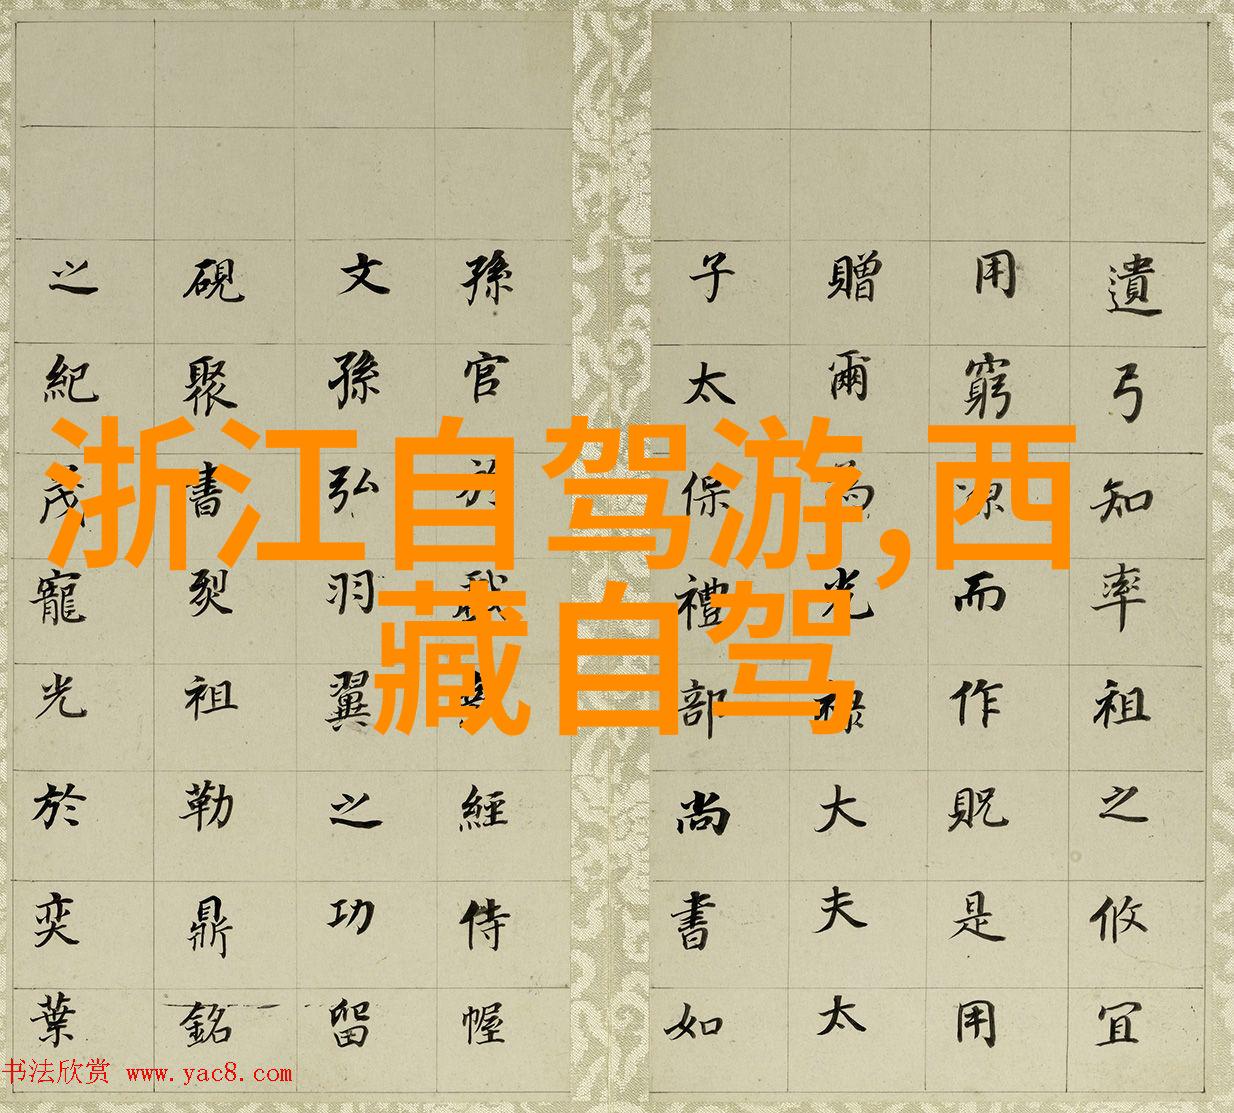 遺弓知率祖之攸宜
用窮源而作貺是用
贈爾為光祿大夫太
子太保禮部尚書如
孫官於戲經侍幄
文孫弘羽翼之功留
硯聚書裂祖勒鼎銘
之紀茂寵光於奕葉
浙江自驾游,西
藏自驾
书法欣赏 www.yac8.com